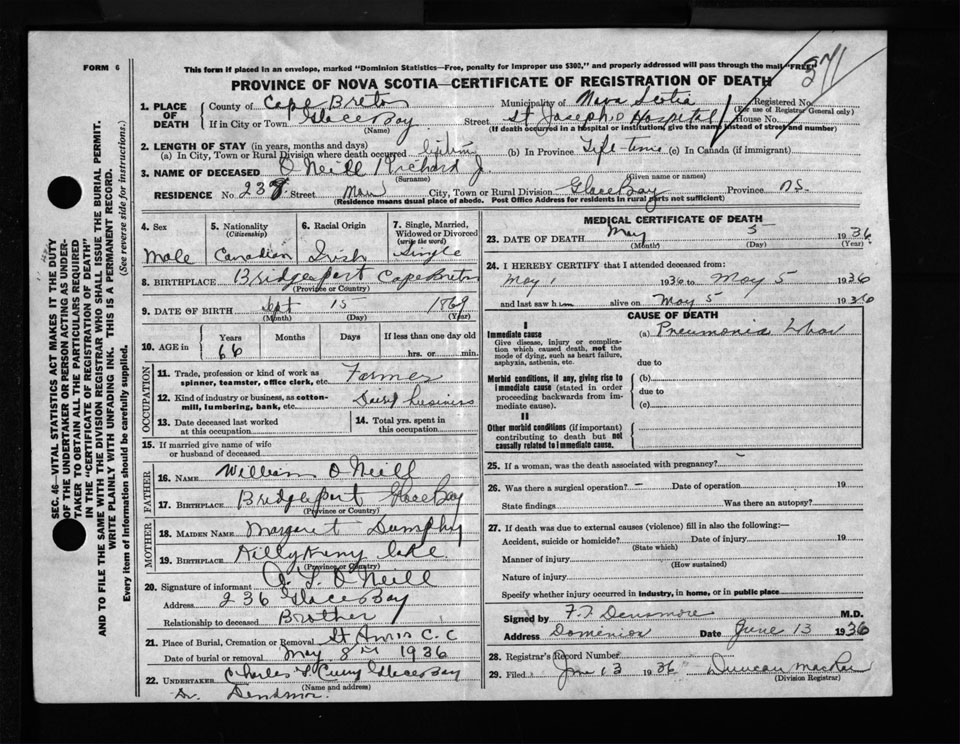 FORM 6
This form if placed in an envelope, marked "Dominion Statistics—Free, penalty for improper use $300," and properly addressed will pass through the mail "FREE"
371
PROVINCE OF NOVA SCOTIA—CERTIFICATE OF REGISTRATION OF DEATH
1. PLACE OF DEATH County of Cape Breton Municipality of Nova Scotia Registered No.
(For use of Registrar General Only)
If in City or Town Glace Bay Street St Joseph's Hospital House No.
(Name) (If death occurred in a hospital or institution, give the name instead of street and number)
2. LENGTH OF STAY (in years, months and days)
(a) In City, Town or Rural Division where death occurred lifetime (b) In Province Life-time (c) In Canada (if immigrant)
3. NAME OF DECEASED O'Neill Richard J.
(Surname) (Given name or names)
RESIDENCE No. 238 Street Main City, Town or Rural Division Glace Bay Province N.S.
(Residence means usual place of abode. Post Office Address for residents in rural parts not sufficient)
4. Sex Male
5. Nationality (Citizenship) Canadian
6. Racial Origin Irish
7. Single, Married, Widowed or Divorced (write the word) Single
8. BIRTHPLACE Bridgeport Cape Breton
(Province or Country)
9. DATE OF BIRTH Sept 15 1869
(Month) (Day) (Year)
10. AGE in Years Months Days If less than one day old
66 hrs. or min.
OCCUPATION
11. Trade, profession or kind of work as spinner, teamster, office clerk, etc. Farmer
12. Kind of industry or business, as cotton-mill, lumbering, bank, etc. business
13. Date deceased last worked at this occupation
14. Total yrs. spent in this occupation
15. If married give name of wife or husband of deceased
FATHER
16. NAME William O'Neill
17. BIRTHPLACE Bridgeport Glace Bay
(Province or Country)
MOTHER
18. MAIDEN NAME Margaret Dumphy
19. BIRTHPLACE Killykenny Lake
(Province or Country)
20. Signature of informant O'Neill
Address 236 Glace Bay
Relationship to deceased Brother
21. Place of Burial, Cremation or Removal St Anns C.C
Date of burial or removal May 8th 1936
22. UNDERTAKER Charles Curry Glace Bay
(Name and address)
Dr.
MEDICAL CERTIFICATE OF DEATH
23. DATE OF DEATH May 5 1936
(Month) (Day) (Year)
24. I HEREBY CERTIFY that I attended deceased from:
May 1 1936 to May 5 1936
and last saw him alive on May 5 1936
CAUSE OF DEATH
I
Immediate cause
Give disease, injury or complication which caused death, not the mode of dying, such as heart failure, asphyxia, asthenia, etc.
(a) Pneumonia Lobar
due to
Morbid conditions, if any, giving rise to immediate cause (stated in order proceeding backwards from immediate cause).
(b)
due to
(c)
II
Other morbid conditions (if important) contributing to death but not causally related to immediate cause.
25. If a woman, was the death associated with pregnancy? –
26. Was there a surgical operation? – Date of operation 19
State findings Was there an autopsy?
27. If death was due to external causes (violence) fill in also the following:—
Accident, suicide or homicide? Date of injury 19
(State which)
Manner of injury
(How sustained)
Nature of injury
Specify whether injury occurred in industry, in home, or in public place
Signed by F. T. Densmore M.D.
Address Dominion Date June 13 1936
28. Registrar's Record Number
29. Filed June 13 1936 Duncan MacRae
(Division Registrar)
SEC. 46—VITAL STATISTICS ACT MAKES IT THE DUTY
OF THE UNDERTAKER OR PERSON ACTING AS UNDER-
TAKER TO OBTAIN ALL THE PARTICULARS REQUIRED
IN THE "CERTIFICATE OF REGISTRATION OF DEATH"
AND TO FILE THE SAME WITH THE DIVISION REGISTRAR WHO SHALL ISSUE THE BURIAL PERMIT.
WRITE PLAINLY WITH UNFADING INK. THIS IS A PERMANENT RECORD.
Every item of information should be carefully supplied. (See reverse side for instructions.)